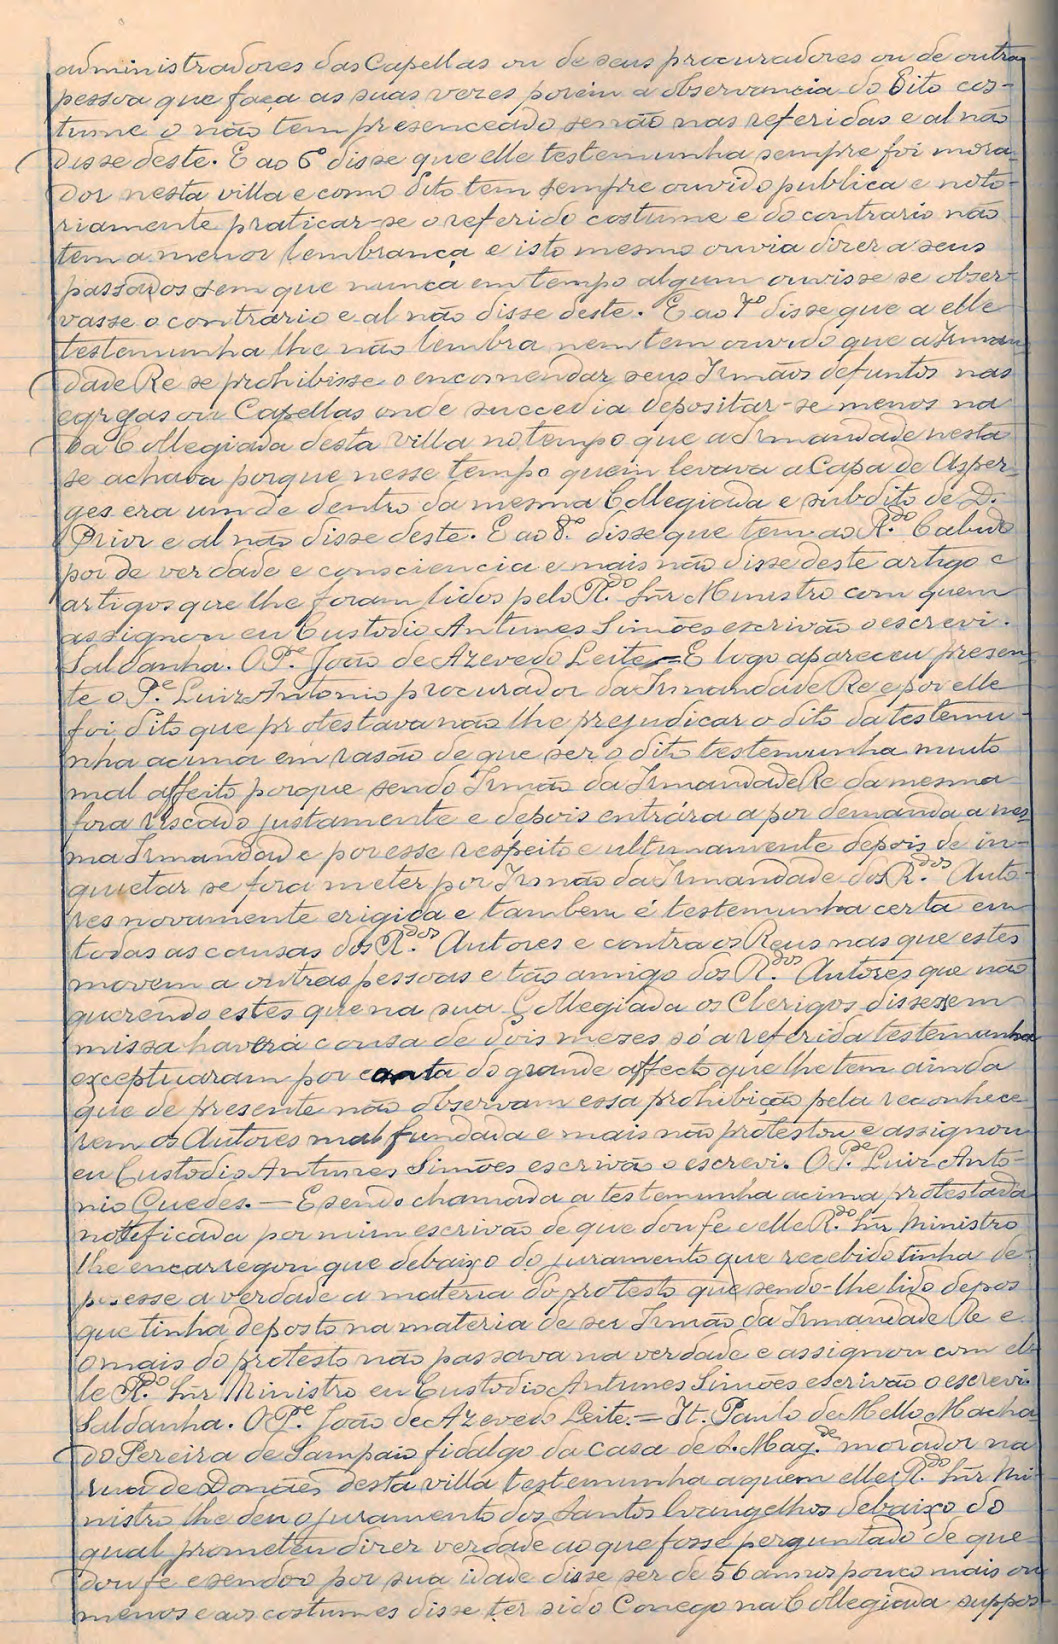 administradores das Capellas ou de seus procuradores ou de outra
pessoa que faça as suas vezes porem a observancia do dito cos-
tume o não tem presenceado senão nas referidas e al não
disse deste. E ao 6º disse que elle testemunha sempre foi mora-
dor nesta villa e como dito tem sempre ouvido publica e noto-
riamente praticar-se o referido costume e do contrario não
tem a menor lembrança e isto mesmo ouvia dizer a seus
passados sem que nunca em tempo algum ouvisse se obser-
vasse o contrario e al não disse deste. E ao 7º disse que a elle
testemunha lhe não lembra nem tem ouvido que a Irman-
dade Re se prohibisse o encomendar seus Irmãos defuntos nas
egrejas ou Capellas onde succedia depositar-se menos na
da Collegiada desta villa no tempo que a Irmandade nesta
se achava porque nesse tempo quem levava a Capa de Asper-
ges era um de dentro da mesma Collegiada e subdito de D.
Prior e al não disse deste. E ao 8.º disse que tem ao R.do Cabido
por de verdade e consciencia e mais não disse deste artigo e
artigos que lhe foram lidos pelo R.do Snr Ministro com quem
assignou eu Custodio Antunes Simões escrivão o escrevi.
Saldanha. O P.e João de Azevedo Leite = E logo apareceu presen-
te o P.e Luiz Antonio procurador da Irmandade Re e por elle
foi dito que protestava não lhe prejudicar o dito da testemu-
nha acima em rasão de que ser o dito testemunha muito
mal affeito porque sendo Irmão da Irmandade Re da mesma
fora riscado justamente e depois entrára a por demanda a mes-
ma Irmandade e por esse respeito e ultimamente depois de in-
quietar se fora meter por Irmão da Irmandade dos R.dos Auto-
res novamente erigida e tambem é testemunha certa em
todas as causas dos R.dos Autores e contra os Reus nas que estes
movem a outras pessoas e tão amigo dos R.dos Autores que não
querendo estes que na sua Collegiada os Clerigos dissessem
missa haverá cousa de dois meses só a referida testemunha
exceptuaram por conta do grande affecto que lhe tem ainda
que de presente não observam essa prohibição pela reconhece-
rem os Autores mal fundada e mais não protestou e assignou
eu Custodio Antunes Simões escrivão o escrevi. O P.e Luiz Anto-
nio Guedes. — E sendo chamada a testemunha acima protestada
noteficada por mim escrivão de que dou fe e elle R.do Snr Ministro
lhe encarregou que debaixo do juramento que recebido tinha de-
posesse a verdade a materia do protesto que sendo-lhe lido depos
que tinha deposto na materia de ser Irmão da Irmandade Re e
o mais do protesto não passava na verdade e assignou com el-
le R.do Snr Ministro eu Custodio Antunes Simões escrivão o escrevi
Saldanha. O P.e João de Azevedo Leite. = It. Paulo de Mello Macha
do Pereira de Sampaio fidalgo da casa de S. Mag.de morador na
rua de Donães desta villa testemunha a quem elle R.do Snr Mi-
nistro lhe deu o juramento dos Santos Evangelhos debaixo do
qual prometeu dizer verdade ao que fosse perguntado de que
dou fe e sendo por sua idade disse ser de 56 annos pouco mais ou
menos e aos costumes disse ter sido Conego na Collegiada suppos-